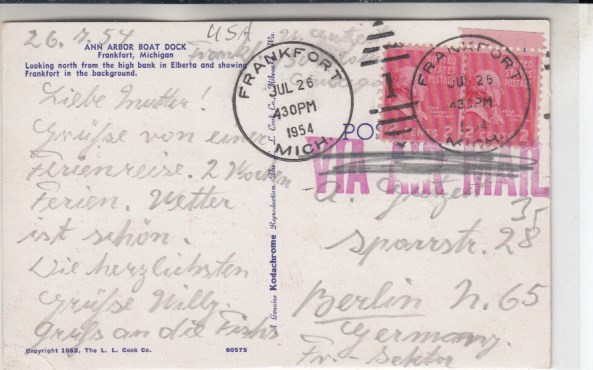 26.7.54
USA
ANN ARBOR BOAT DOCK
Frankfort, Michigan
Looking north from the high bank in Elberta and showing
Frankfort in the background.
Liebe Mutter!
Grüße von einer
Ferienreise. 2 Wochen
Ferien. Wetter
ist schön.
Die herzlichsten
Grüße Willy.
Gruß an die Fischs
Copyright 1952, The L. L. Cook Co.
60575
A Genuine Kodachrome Reproduction, The L. L. Cook Co., Milwaukee, Wis.
FRANKFORT
JUL 26
430PM
1954
MICH.
1
FRANKFORT
JUL 26
430PM
MICH.
UNITED STATES POSTAGE
2 2
POS
VIA AIR MAIL
35
Sparrstr. 28
Berlin N. 65
Germany.
Fr- Sektor